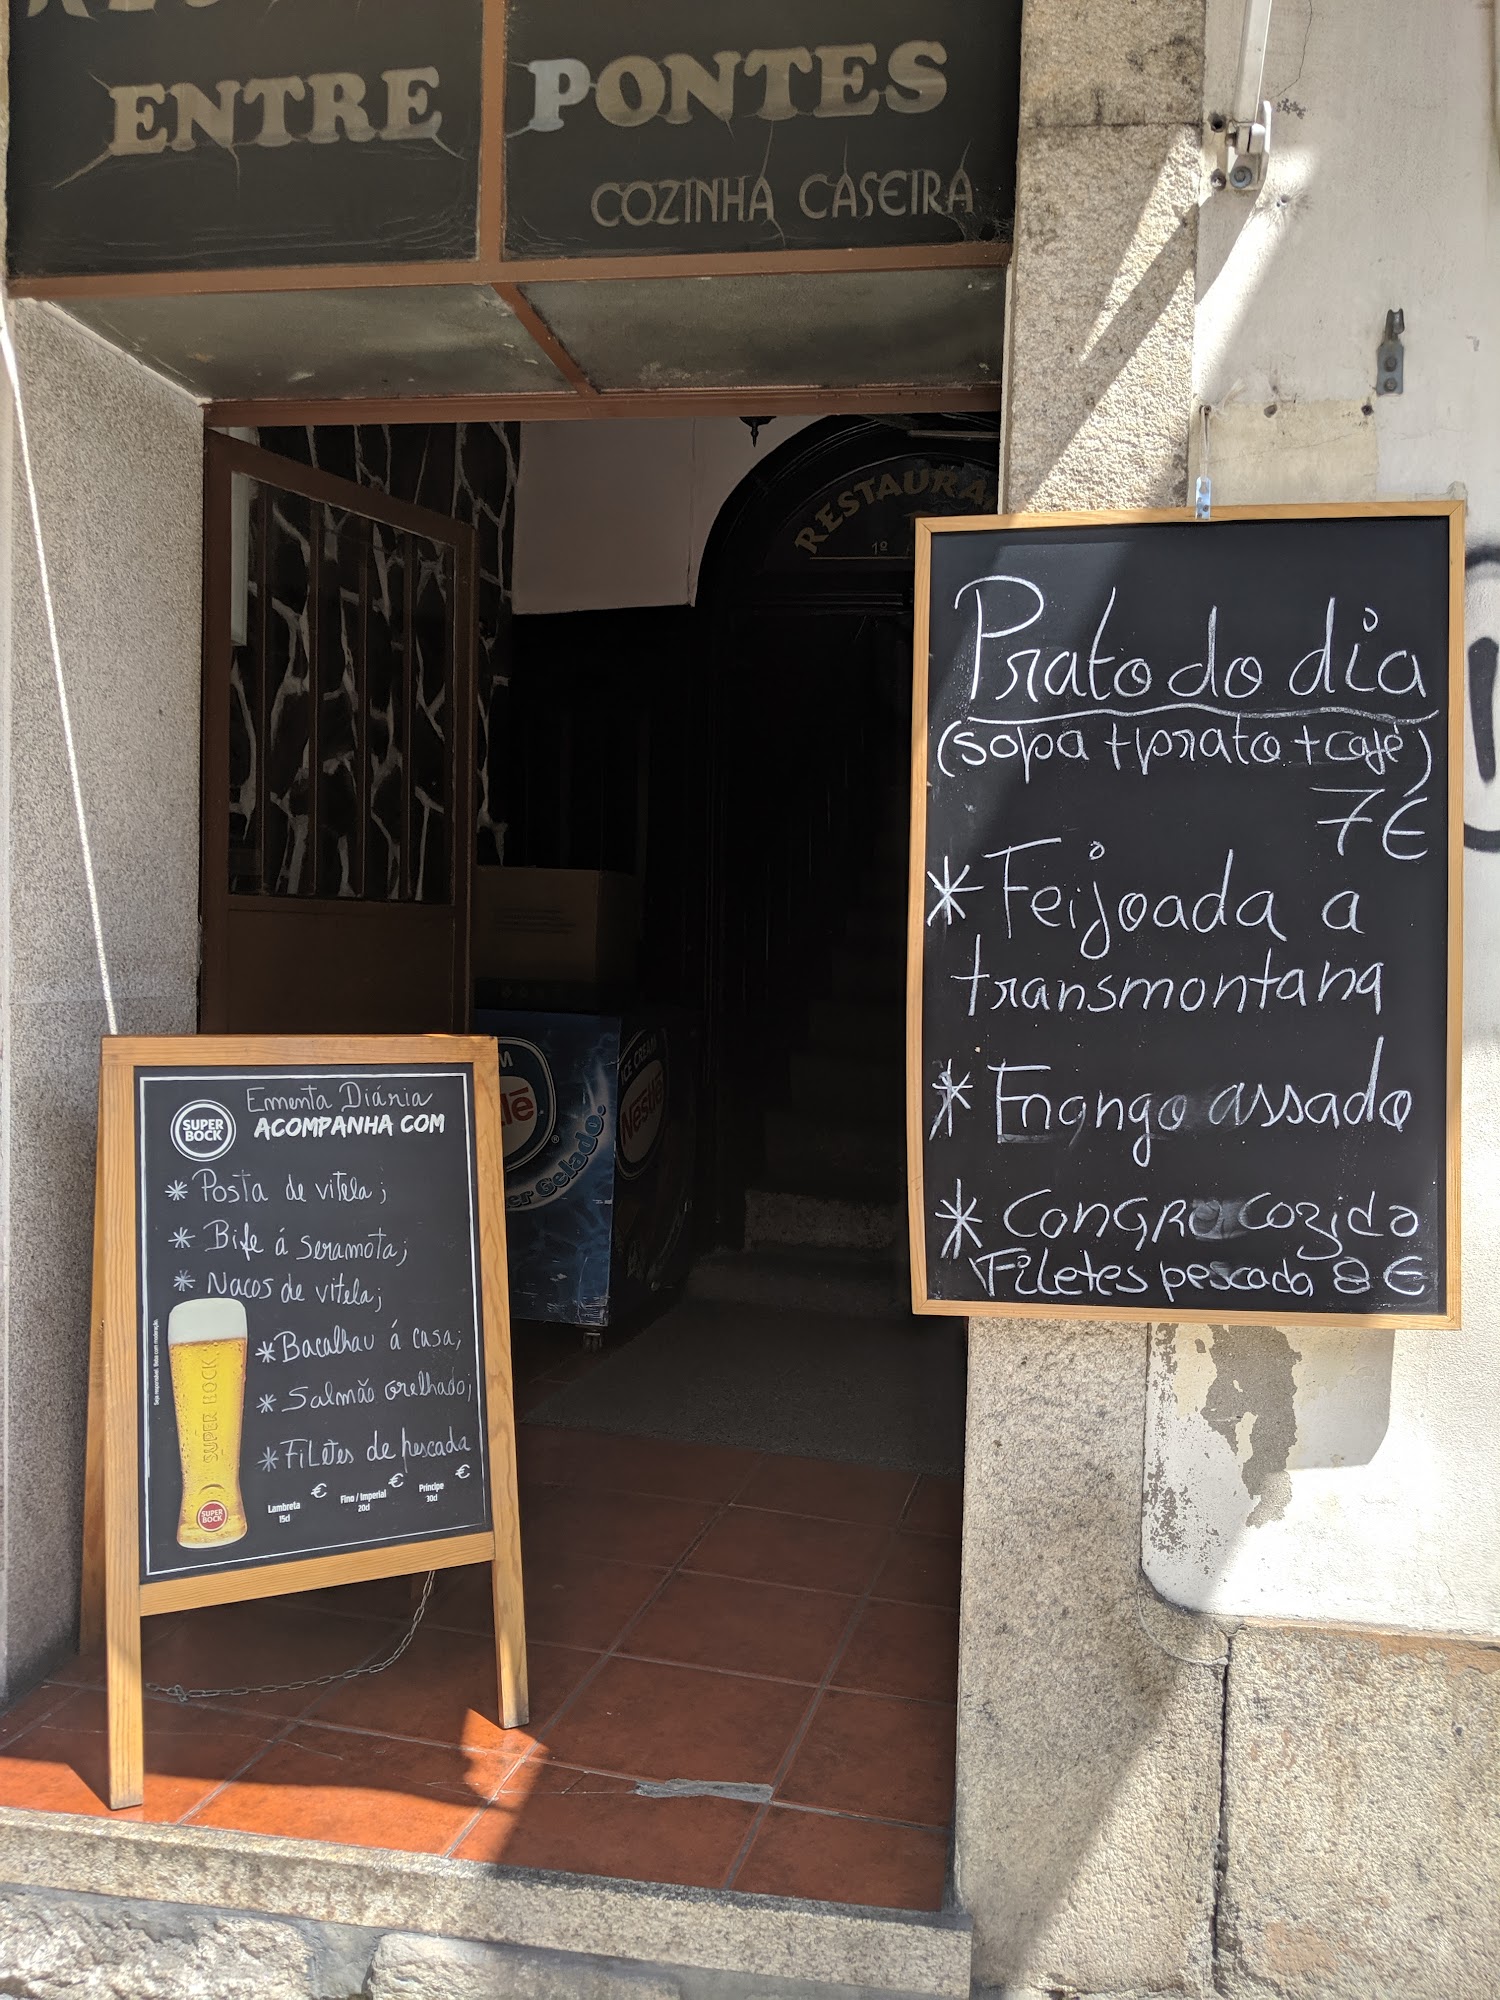 ENTRE PONTES
COZINHA CASEIRA
1º
Prato do dia
(sopa + prato + café)
7€
* Feijoada a
transmontana
* Frango assado
* Congro cozido
Filetes pescada 8€
Ementa Diária
SUPER BOCK
ACOMPANHA COM
* Posta de vitela;
* Bife á seramota;
* Nacos de vitela;
* Bacalhau á casa;
* Salmão grelhado;
* Filetes de pescada
€ € €
Lambreta Fino / Imperial Príncipe
15cl 20cl 30cl
Seja responsável. Beba com moderação.
SUPER BOCK
SUPER BOCK
ICE CREAM
Nestlé
Gelado